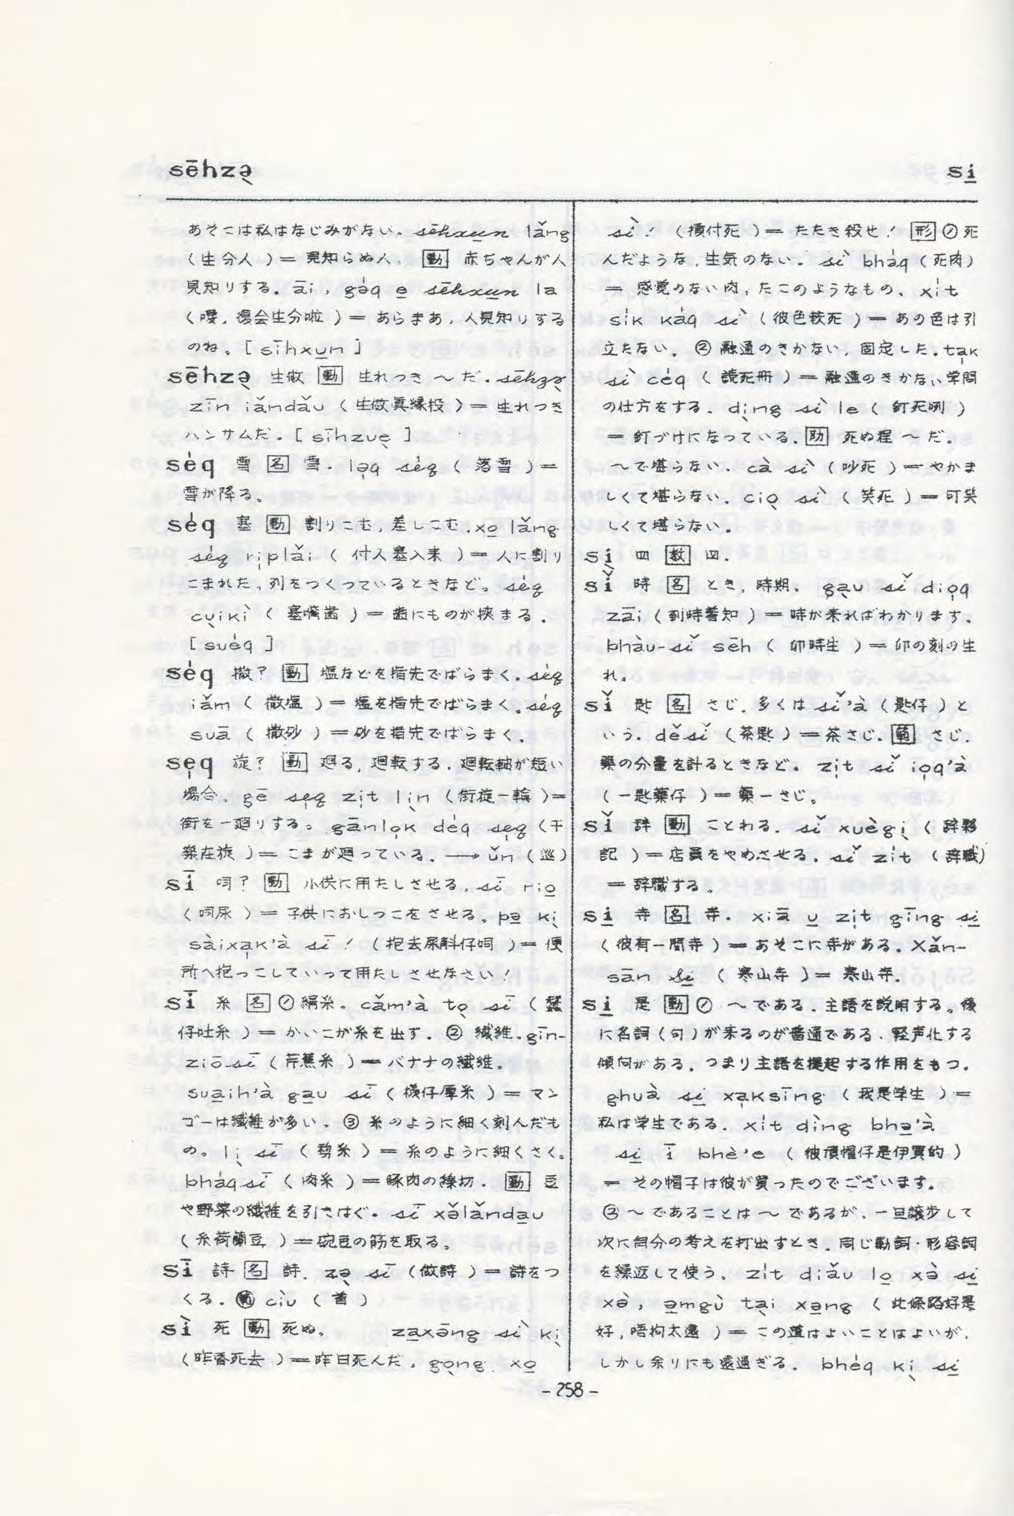 sēhzə̣
si̱
あそこは私はなじみがない. sēhxu̱n lǎng
(生分人)=見知らぬ人. 動 赤ちゃんが人
見知りする. āi, ge̍q e̱ sēhxu̱n la
(噯,復会生分啦)=あらまあ,人見知りする
のね。[sīhxu̱n]
sēhzə̣ 生做 動 生れつき〜だ. sēhzə̣
zīn iǎndǎu (生做真縁投)=生れつき
ハンサムだ. [sīhzuẹ]
se̍q 雪 名 雪. lə̣q se̍q (落雪)=
雪が降る。
se̍q 塞 動 割りこむ, 差しこむ. xo̱ lǎng
se̍q ri̍plǎi (付人塞入来)=人に割り
こまれた, 列をつくっているときなど。se̍q
cụikì (塞嘴歯)=歯にものが挟まる.
[sue̍q]
se̍q 撒? 動 塩などを指先でばらまく. se̍q
iǎm (撒塩)=塩を指先でばらまく. se̍q
suā (撒砂)=砂を指先でばらまく.
sẹq 旋? 動 廻る, 廻転する, 廻転軸が短い
場合. gē sẹq zi̍t lịn (街旋一輪)=
街を一廻りする。gānlo̩k de̍q sẹq (干
楽在旋)=こまが廻っている. ―→ǔn (巡)
sī 呵? 動 小供に用たしさせる. sī rio̱
(呵尿)=子供におしっこをさせる. pə̱ kị
sàixak'à sī! (抱去屎斛仔呵)=便
所へ抱っこしていって用たしさせなさい!
sī 糸 名 ①絹糸. cǎm'à tọ sī (蚕
仔吐糸)=かいこが糸を出す. ②繊維. gīn-
ziō-sī (芹蕉糸)=バナナの繊維。
sua̱ih'à ga̱u sī (檨仔厚糸)=マン
ゴーは繊維が多い. ③糸のように細く刻んだも
の。lị sī (剺糸)=糸のように細くさく。
bha̍q-sī (肉糸)=豚肉の線切. 動 豆
や野菜の繊維を引きはぐ. sī xə̌lǎnda̱u
(糸荷蘭豆)=碗豆の筋を取る。
sī 詩 名 詩. zə̣ sī (做詩)=詩をつ
くる. cìu (首)
sì 死 動 死ぬ. zaxə̄ng sì kị
(昨昏死去)=昨日死んだ. gọng xo̱
sì! (摃付死)=たたき殺せ! 形①死
んだような, 生気のない. sì bha̍q (死肉)
=感覚のない肉, たこのようなもの. xi̍t
si̍k ka̍q sì (彼色較死)=あの色は引
立たない. ②融通のきかない, 固定した. ta̩k
sì ce̍q (読死冊)=融通のきかない学問
の仕方をする. dịng sì le (釘死咧)
=釘づけになっている. 助 死ぬ程〜だ.
〜で堪らない. cà sì (吵死)=やかま
しくて堪らない. ciọ sì (笑死)=可笑
しくて堪らない.
sị 四 数 四.
sǐ 時 名 とき, 時期. gạu sǐ di̍əq
zāi (到時着知)=時が来ればわかります.
bhàu-sǐ sēh (卯時生)=卯の刻の生
れ.
sǐ 匙 名 さじ. 多くは sǐ'à (匙仔) と
いう. dě-sǐ (茶匙)=茶さじ. 量 さじ.
薬の分量を計るときなど。zi̍t sǐ iọq'à
(一匙薬仔)=薬一さじ。
sǐ 辞 動 ことわる. sǐ xuègị (辞夥
記)=店員をやめさせる. sǐ zi̍t (辞職)
=辞職する。
si̱ 寺 名 寺. xiā u̱ zi̍t gīng si̱
(彼有一間寺)=あそこに寺がある. Xǎn-
sān Si̱ (寒山寺)=寒山寺.
si̱ 是 動 ①〜である. 主語を説明する。後
に名詞(句)が来るのが普通である. 軽声化する
傾向がある. つまり主語を提起する作用をもつ.
ghuà si̱ xa̩ksīng (我是学生)=
私は学生である. xi̍t dìng bhə̱'à
si̱ ī bhè'e (彼頂帽仔是伊買的)
=その帽子は彼が買ったのでございます.
③〜であることは〜であるが. 一旦譲歩して
次に自分の考えを打出すとき. 同じ動詞・形容詞
を繰返して使う. zi̍t diǎu lo̱ xə̀ si̱
xə̀, ə̱mgù tại xə̱ng (此條路好是
好, 唔拘太遠)=この道はよいことはよいが,
しかし余りにも遠過ぎる. bhe̍q kị si̱
-258-